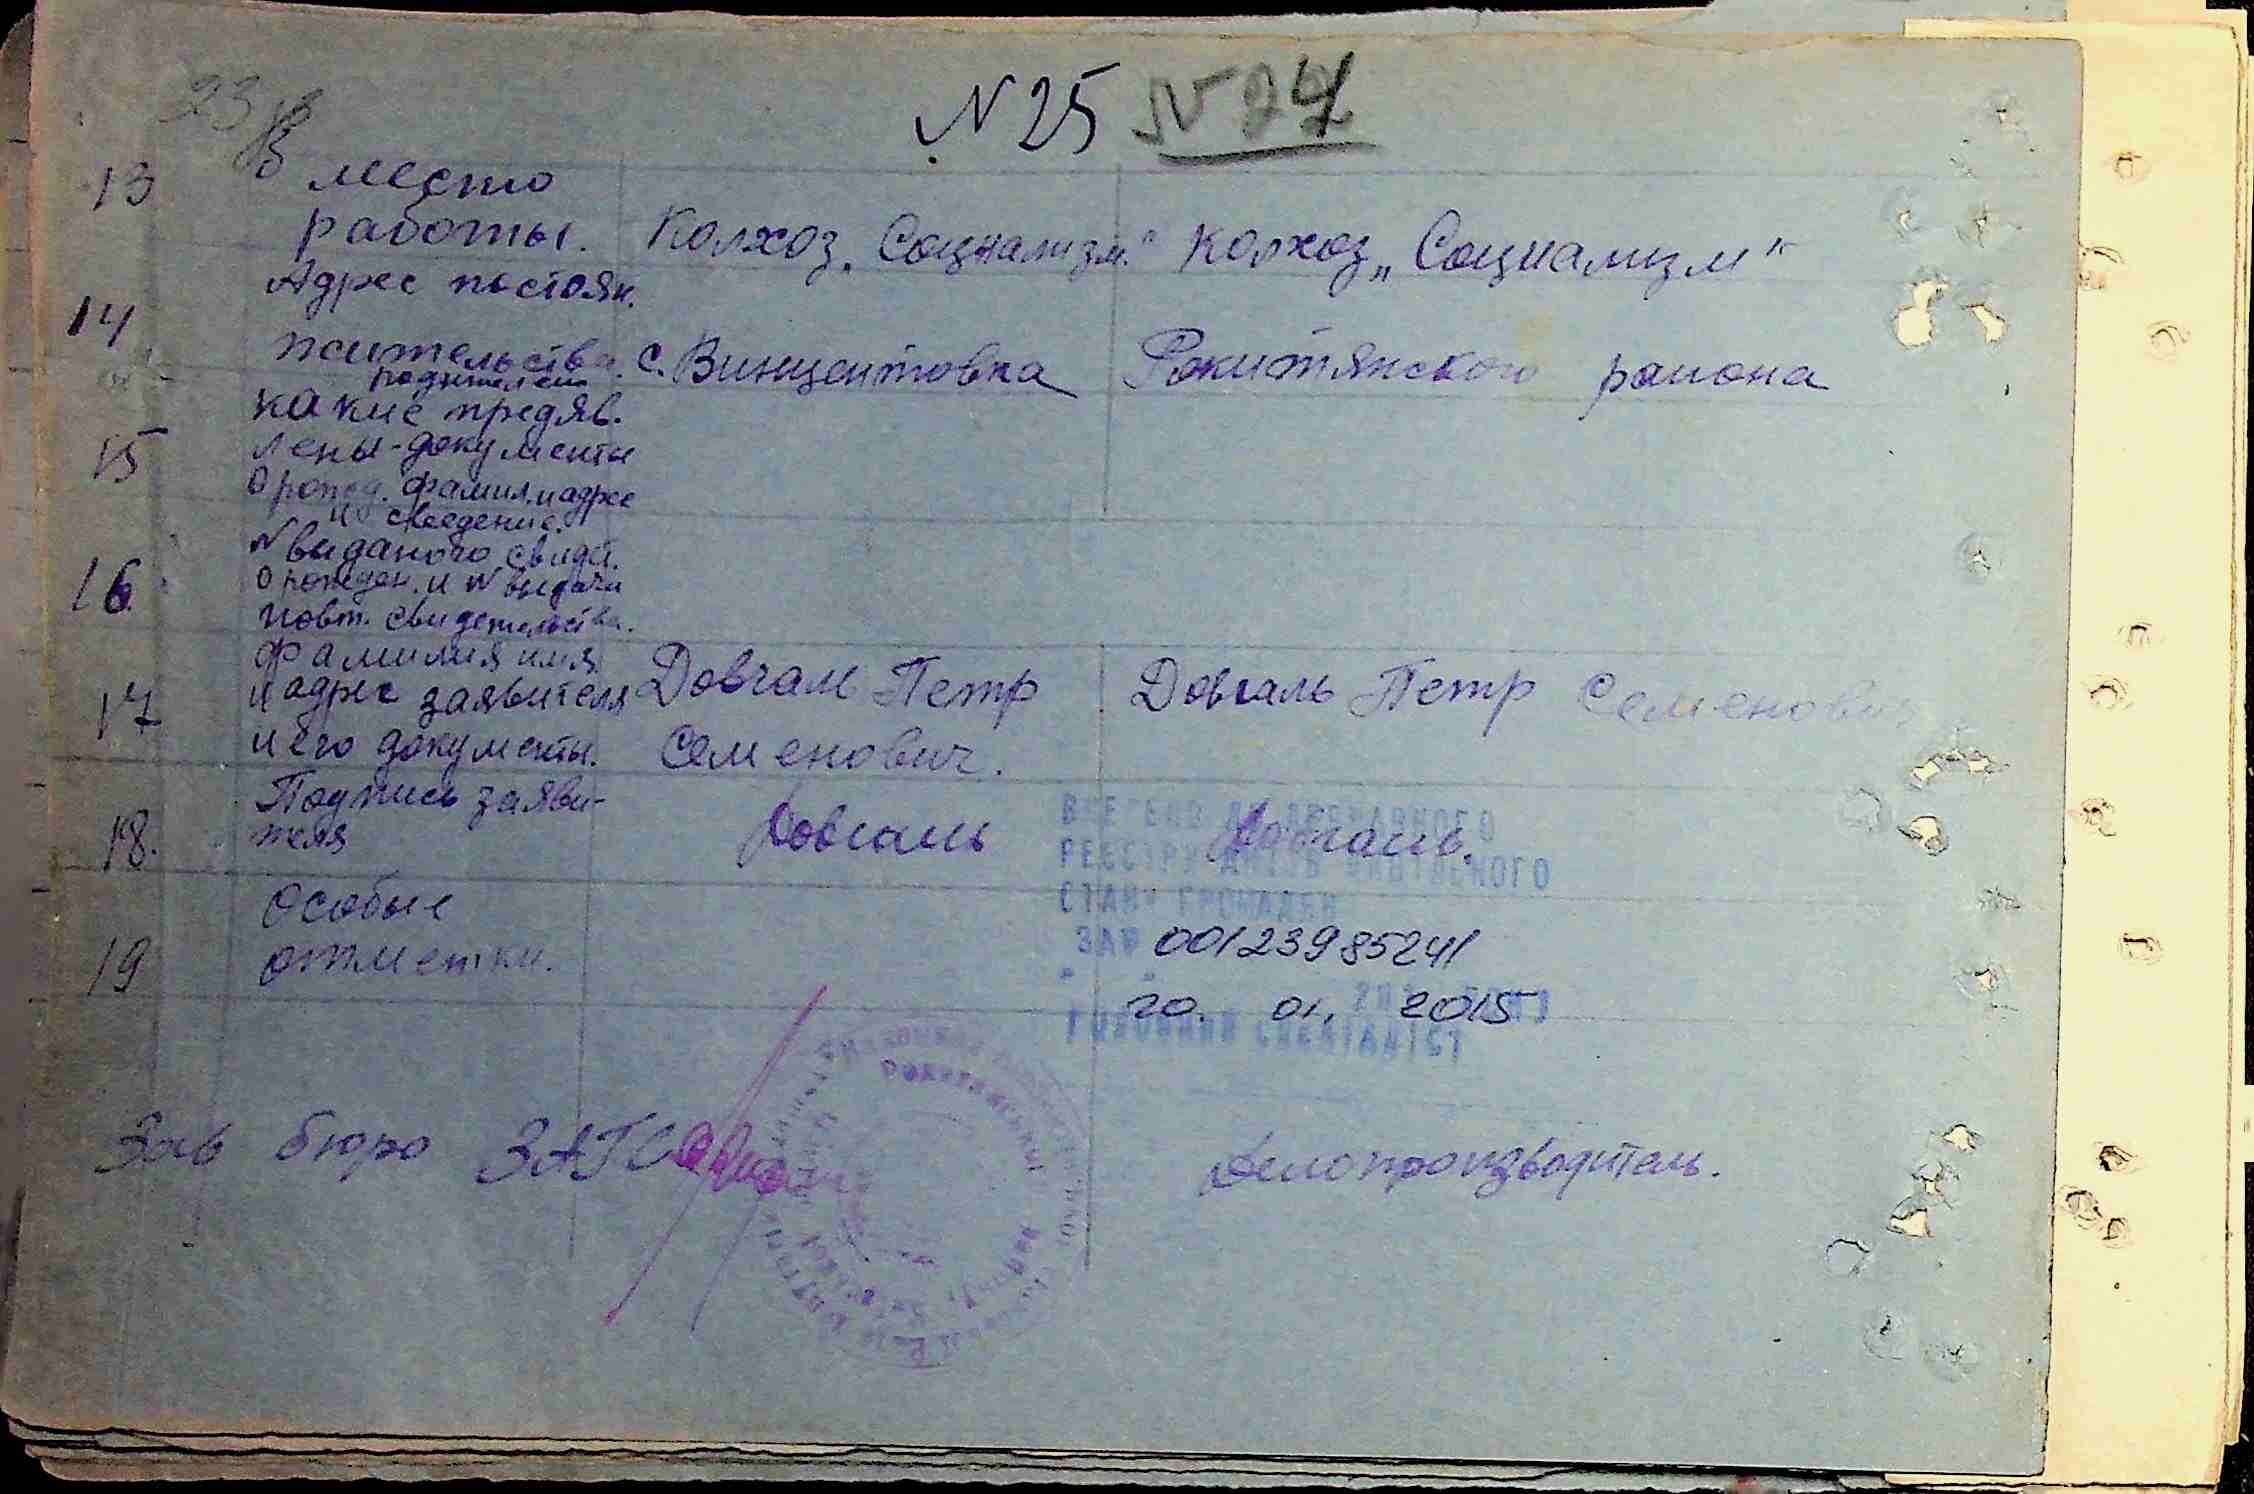 23
N 25 N 27
13 в место
работы. Колхоз „Социализм" Колхоз „Социализм"
14 Адрес постоян.
жительства. с. Винцентовка Рокитянского района
родителей
15 какие предяв.
лены-документы
о рожд. фамил. и адрес
и сведение.
16. N выданого свидет.
о рожден. и N выдачи
повт. свидетельства.
17 фамилия имя Довгаль Петр Довгаль Петр Семенович
и адрес заявителя Семенович.
и его документы.
18. Подпись заяви-
теля Довгаль Довгаль.
19 Особые
отметки.
ВНЕСЕНО ДО ДЕРЖАВНОГО
РЕЄСТРУ АКТІВ ЦИВІЛЬНОГО
СТАНУ ГРОМАДЯН
ЗА № 00123985241
20. 01. 2015
ГОЛОВНИЙ СПЕЦІАЛІСТ
Зав бюро ЗАГС Делопроизводитель.